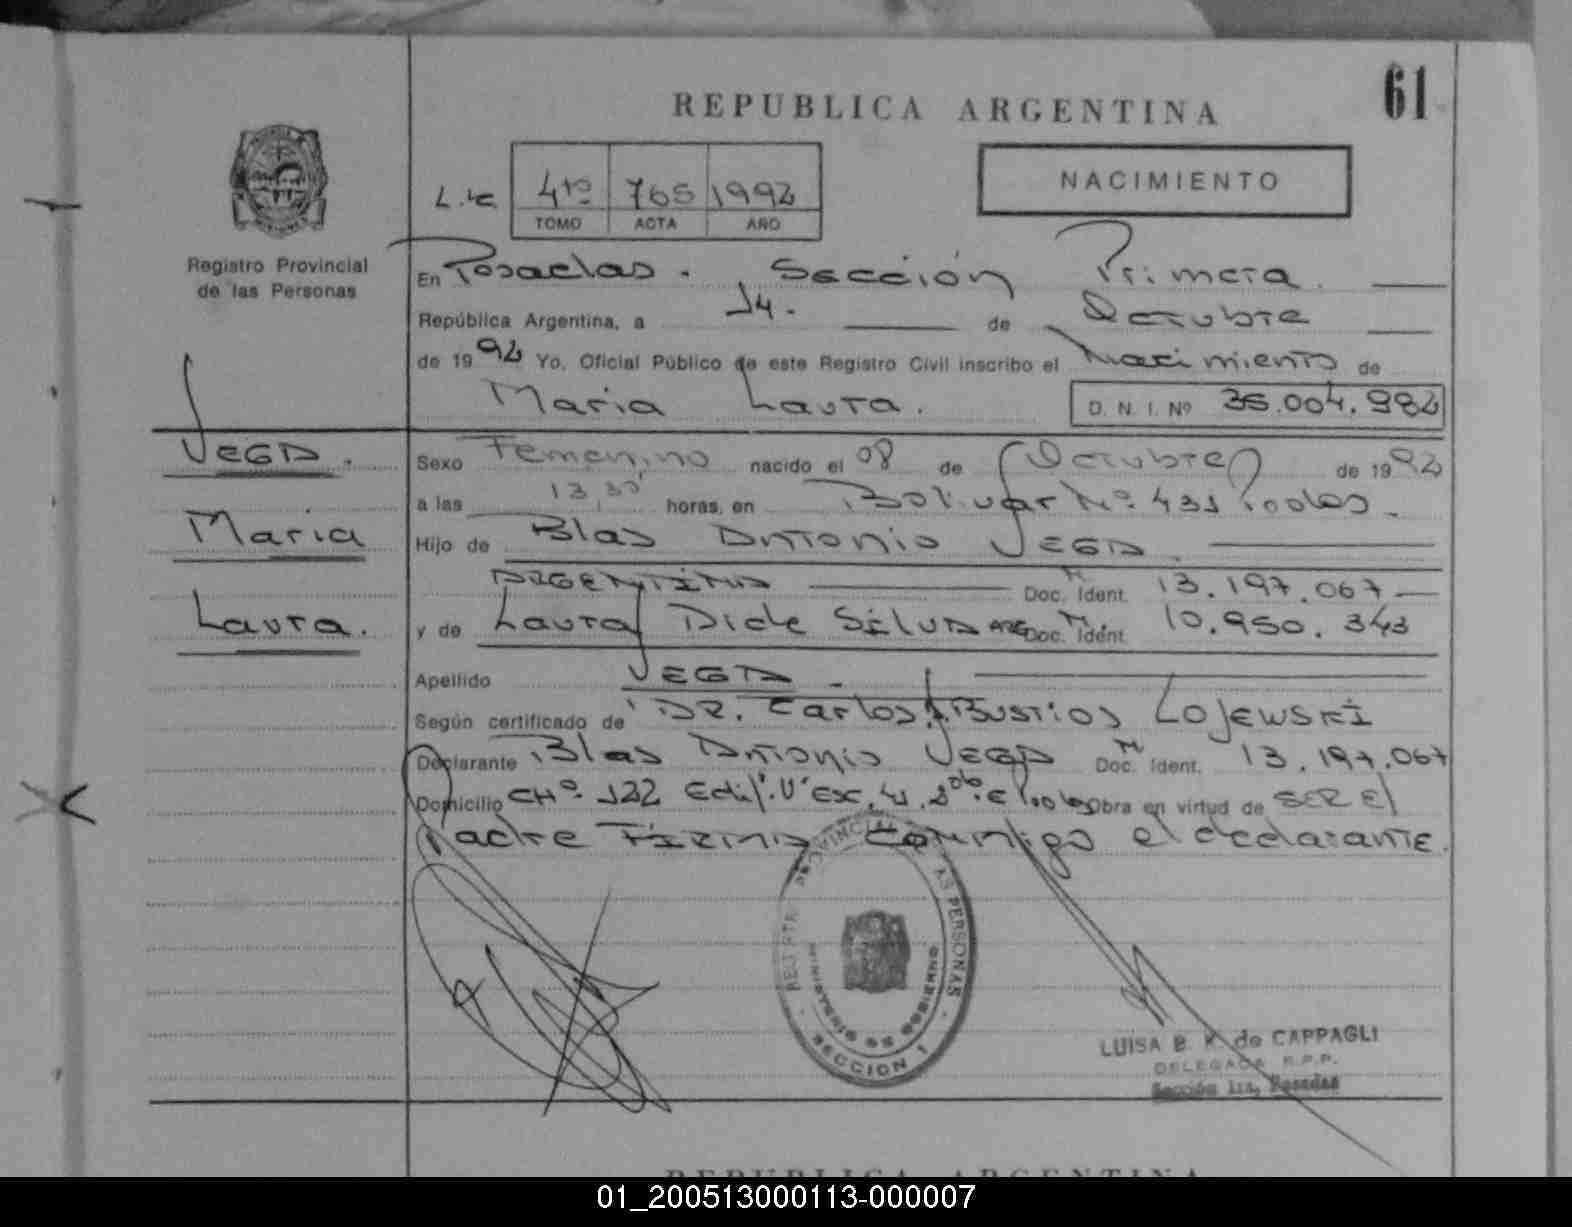 61
REPUBLICA ARGENTINA
NACIMIENTO
4to 765 1992
TOMO ACTA AÑO
Registro Provincial
de las Personas
En Posadas. Sección Primera.
República Argentina, a 14. de Octubre
de 1992 Yo, Oficial Público de este Registro Civil inscribo el Nacimiento de
Maria Laura.
D. N. I. Nº 36.004.982
VEGA.
Maria
Laura.
Sexo Femenino nacido el 08 de Octubre de 1992
a las 13,30 horas, en Bolivar Nº 431 Posadas.
Hijo de Blas Antonio VEGA.
ARGENTINA Doc. Ident. M 13.197.067
y de Laura Aide SILVA ARG Doc. Ident. M. 10.950.343
Apellido VEGA
Según certificado de DR. Carlos J. BUSTIOS LOJEWSKI
Declarante Blas Antonio VEGA Doc. Ident. M 13.197.067
Domicilio CHº 122 Edif. Obra en virtud de SER El
Padre FIRMA Conmigo el declarante.
PROVINCIAL
AS PERSONAS
MINISTERIO DE GOBIERNO
SECCION 1
LUISA B. K. de CAPPAGLI
DELEGADA R.P.P.
Sección 1ra, Posadas
REPUBLICA ARGENTINA
01_200513000113-000007